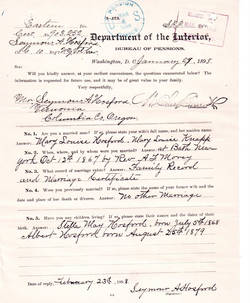 Eastern
Department of the Interior,
BUREAU OF PENSIONS,
Seymour A. Hosford
Washington, D. C., January 29, 1898.
Will you kindly answer, at your earliest convenience, the questions enumerated below? The
information is requested for future use, and it may be of great value to your family.
Very respectfully,
Mr. Seymour A Hosford
Vernonia
Columbia Co, Oregon
No. 1. Are you a married man? If so, please state your wife's full name, and her maiden name.
Answer: Mary Louise Hosford. Mary Louise
No. 2. When, where, and by whom were you married? Answer: at Bath New
York Oct 12th 1867 by Rev. A F Morey
No. 3. What record of marriage exists? Answer: Family Record
and Marriage Certificate
No. 4. Were you previously married? If so, please state the name of your former wife and the
date and place of her death or divorce. Answer: No other Marriage
No. 5. Have you any children living? If so, please state their names and the dates of their
birth. Answer: May Hosford, born July 5th 1868
Albert Hosford born August 25th 1879
Date of reply, February 23d, 1898
Seymour A Hosford